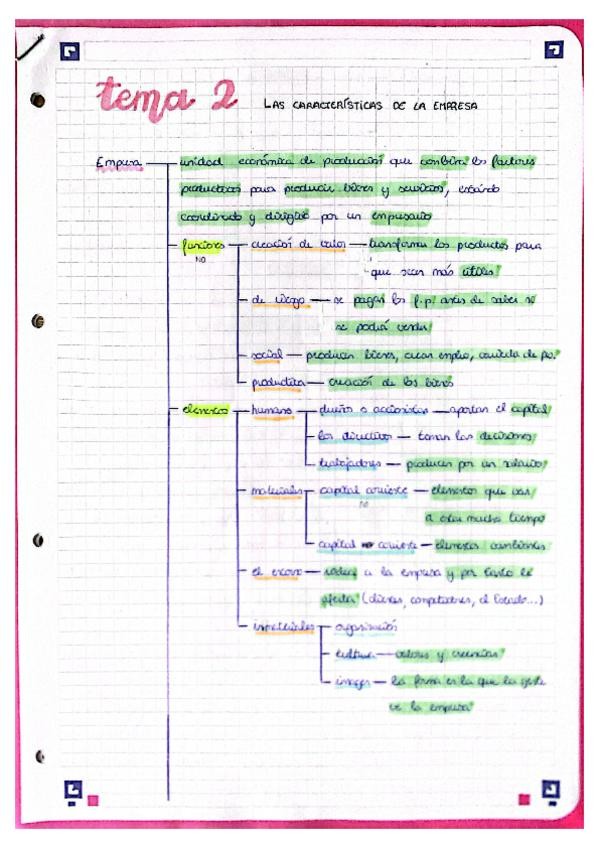 tema 2 LAS CARACTERÍSTICAS DE LA EMPRESA
Empresa unidad económica de producción que combina los factores
productivos para producir bienes y servicios, estando
coordinado y dirigido por un empresario
funciones creación de valor transforma los productos para
NO
que sean más útiles
de riesgo se pagan los f.p antes de saber si
se podrá vender
social producen bienes, crean empleo,
productiva creación de los bienes
elementos humano dueño o accionistas aportan el capital
los directivos toman las decisiones
trabajadores producen por un salario
materiales capital corriente elementos que van
NO
a estar mucho tiempo
capital corriente elementos cambiantes
el entorno rodea a la empresa y por tanto le
afecta (clientes, competidores, el Estado...)
inmateriales organización
cultura valores y creencias
imagen la forma en la que la gente
ve la empresa